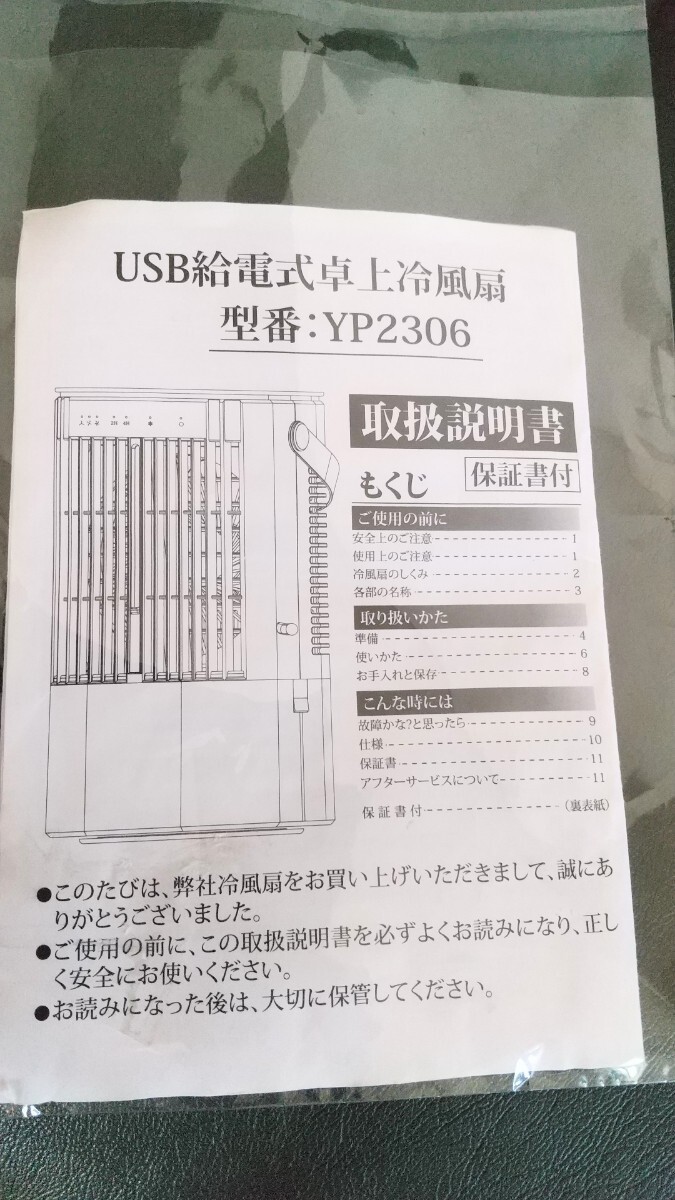 USB給電式卓上冷風扇
型番：YP2306
取扱説明書
もくじ
保証書付
ご使用の前に
安全上のご注意 1
使用上のご注意 1
冷風扇のしくみ 2
各部の名称 3
取り扱いかた
準備 4
使いかた 6
お手入れと保存 8
こんな時には
故障かな?と思ったら 9
仕様 10
保証書 11
アフターサービスについて 11
保証書付 （裏表紙）
●このたびは、弊社冷風扇をお買い上げいただきまして、誠にあ
りがとうございました。
●ご使用の前に、この取扱説明書を必ずよくお読みになり、正し
く安全にお使いください。
●お読みになった後は、大切に保管してください。